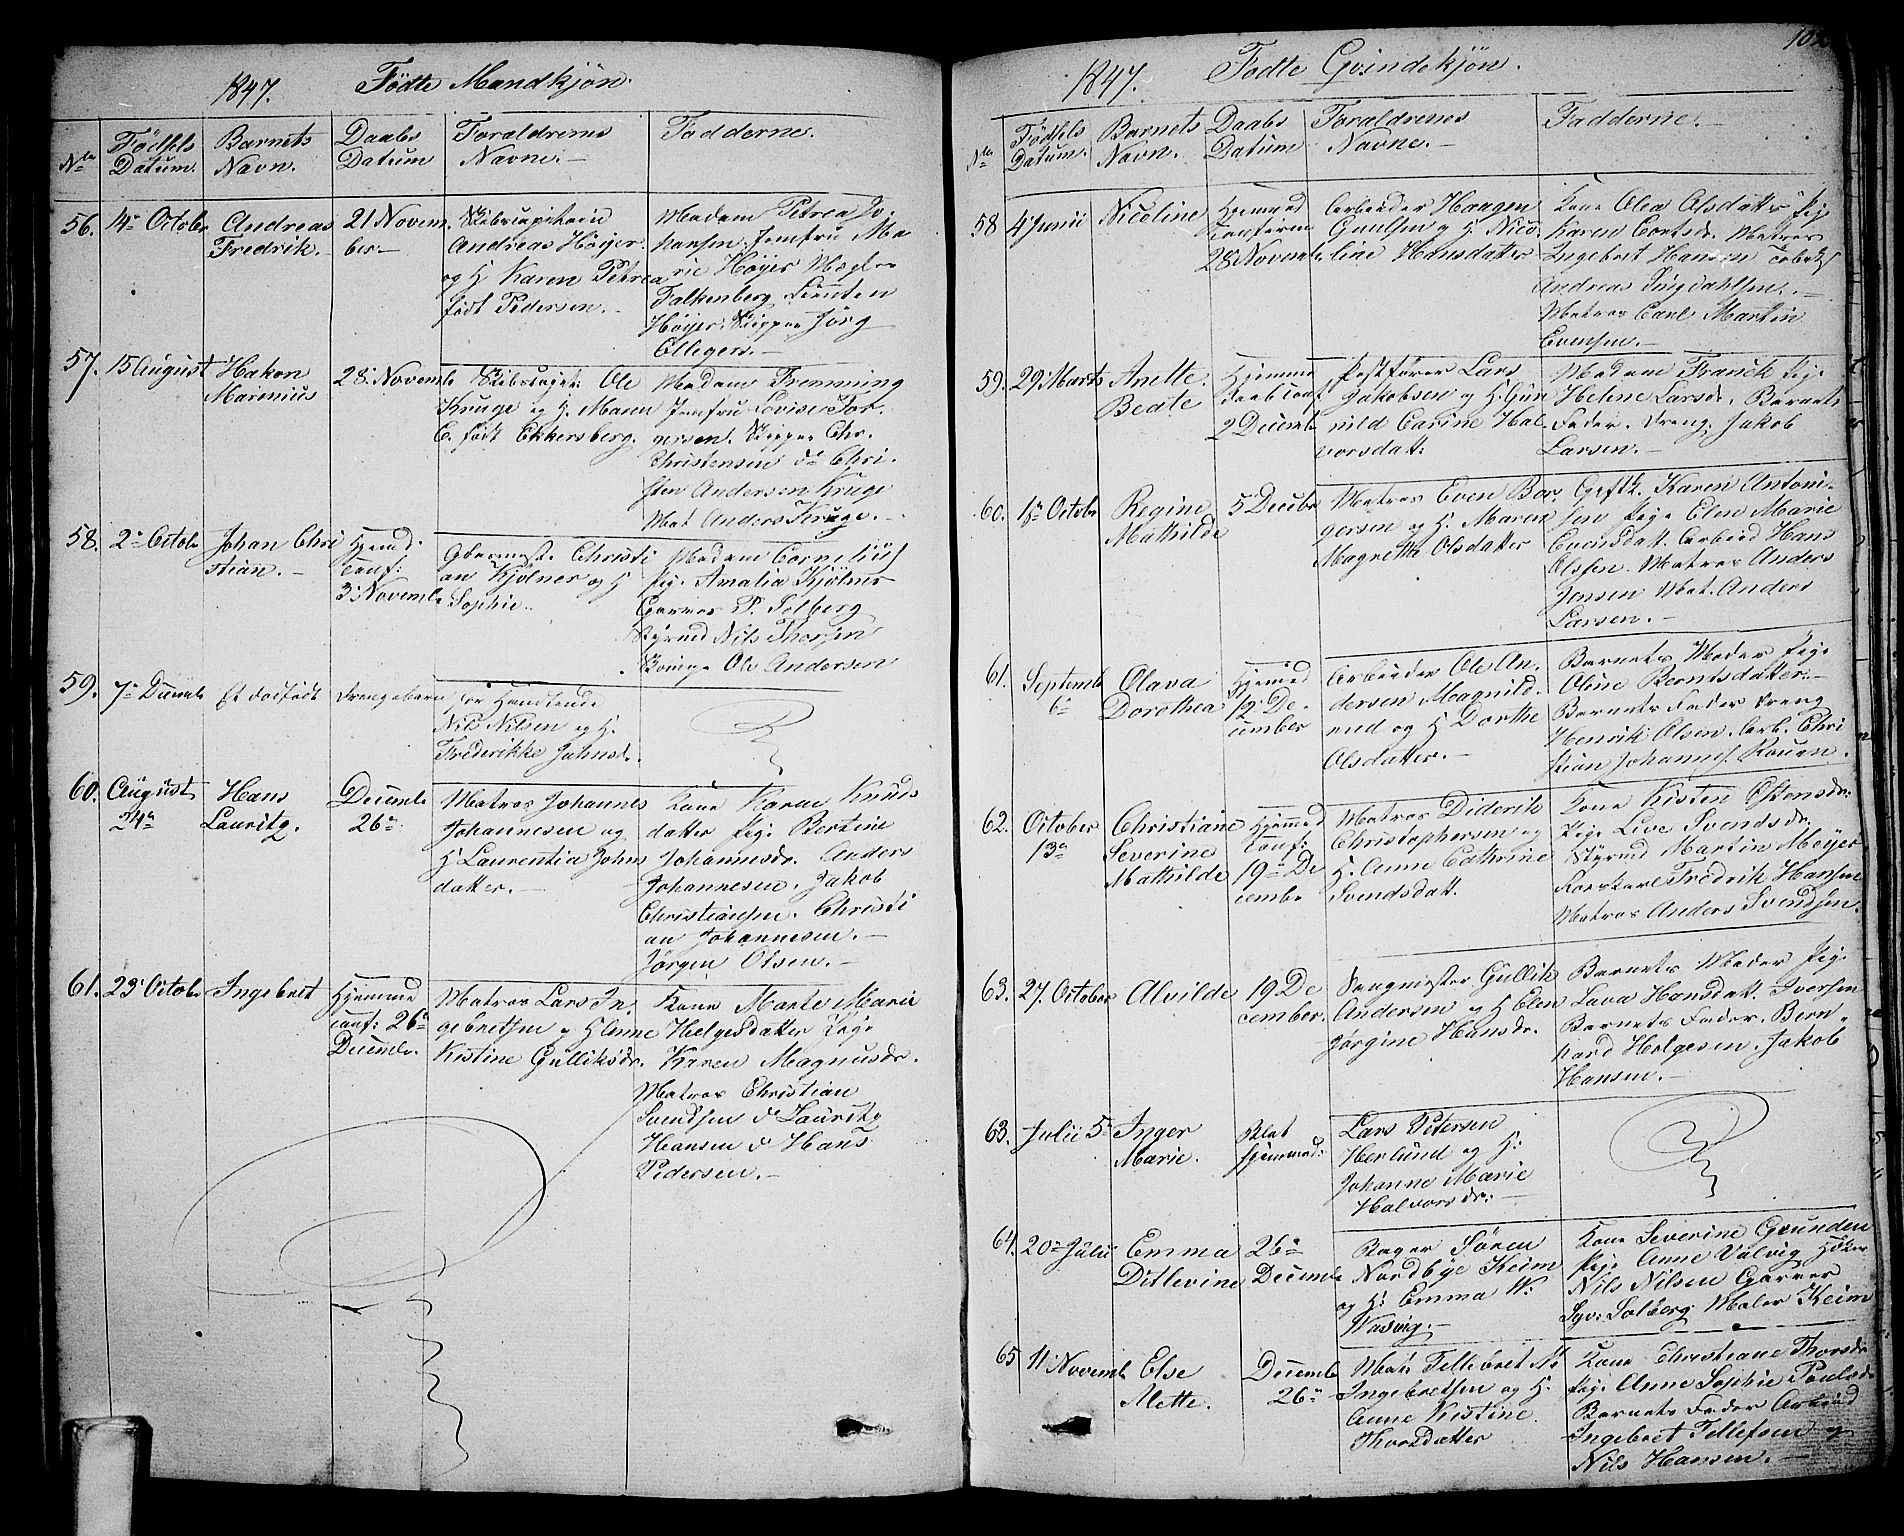 1847. Födte Mandkjön.
No Födsels Datum. Barnets Navn. Daabs Datum Foraldrenes Navne. Fadderne.
56. 4de October Andreas Fredrik. 21 November
Skibscapitain
Andreas Höyer
og H. Karen Petrea
födt Pedersen.
Madam Petrea Jo-
hansen. Jomfru Ma
rie Höyer Mægler
Falkenberg Lieuten
Höyer. Skipper Jörg
Ellegers.
57. 15 August Hakon Marenius 28 Novemb
Ole
Kruge og H. Maren
C. födt Ekkersberg.
Madam Fremming
Jomfru Lovise Tor-
Skipper Chr.
Christensen do Chri-
sten Andersen Kruge
Mat Anders Kruge.
58. 2de Octob Johan Christian. Hjemd: Conf: 3 Novemb
Christi
an Kjölner og H
Sophie.
Madam Cornelius
Pige Amalia Kjölner
Garver P. Solberg
Styrmd Nils Thorsen
Ole Andersen
59. 7de Decemb Et dödfödt Drengebarn
Nils Nilsen og H.
Frederikke Jahnsd.
60. August 24de Hans Lauritz. Decemb 26de
Matros Johannes
Johannesen og
H Laurentia Johns
datter.
Kone Karen Knuds
datter Pige Bertine
Johannesdr. Anders
Johannesen. Jakob
Christiansen. Christi
an Johannesen.
Jörgen Olsen.
61. 23 Octob Ingebret Hjemme Conf: 26de Decemb.
Matros Lars In-
gebretsen og H Anne
Kistine Gulliksdr.
Kone Marte Marie
Helgesdatter Pige
Karen Magnusdr.
Matros Christian
Svendsen do Lauritz
Hansen do Hans
Pedersen.
1847. Födte Qvindekjön.
No Födsels Datum. Barnets Navn. Daabs Datum Foraldrenes Navne. Fadderne.
58 4 Junii Nicoline Hjemmed Confirm 28 Novemb
Arbeider Haagen
Guulsen og H. Nico-
line Hansdatter
Kone Olea Olsdatter Pige
Karen Cortsdr. Matros
Ingebret Hansen Arbeid
Andreas Singdahlsen.
Matros Carl Martin
Evensen.
59. 29 Marts Anette Beate Hjemme daab Conf 2 Decemb
Postförer Lars
Jakobsen og H. Gun
nild Carine Hal-
vorsdatt:
Madam Franck Pige
Helene Larsdr. Barnets
Fader. Dreng. Jakob
Larsen.
60. Octobr Regine Mathilde 5 Decebr
Matros Even Bor-
gersen og H. Maren
Magrethe Olsdatter
Gift K. Karen Antoni-
sen Pige Elen Marie
Evensdatt. Arbeid Hans
Olssen. Matros Anders
Jensen Mat. Anders
Larsen.
61. Septemb 6te Olava Dorothea Hjemmed 12 De-cember
Arbeider Ole An-
dersen Magnild-
rud og H Dorthe
Olsdatter.
Barnets Moder Pige
Oline Berntsdatter.
Barnets Fader Dreng
Henrik Olsen. Arb. Chri
stian Johannes. Rouen.
62. October 13de Christiane Severine Mathilde Hjemmed Conf: 19de December
Matros Diderik
Christophersen og
H. Anne Cathrine
Svendsdatt.
Kone Kisten Estensdr:
Pige Live Svendsdr.
Styrmd Martin Meyer
Fredrik Hansen
Matros Anders Svendsen.
63. 27. October Alvilde 19 De cember.
Gullik
Andersen og H Elen
Jörgine Hansdr.
Barnets Moder Pige
Lava Hansdatt. Iversen
Barnets Fader. Bern-
hard Helgesen. Jakob
Hansen.
63. Julii 5te Inger Marie. Blot hjemmed:
Lars Petersen
Herlund og H:
Johanne Marie
Halvorsdr.
64. 20de Julii Emma Ditlevine 26de Decemb
Bager Sören
Nordbye Keim
og H: Emma W:
Wasvig.
Kone Severine Grunden
Pige Anne Valvig Höker
Nils Nilsen Garver
Syv: Solberg Maler Keim
65 11 Novemb Else Mette. Decemb 26de
Mat: Tellevret N:
Ingebretsen og H.
Anne Kistine
Thorsdatter
Kone Christiane Thorsdr
Pige Anne Sophie Paulsdr
Barnets Fader Arbeid
Ingebret Tellefsen og
Nils Hansen.